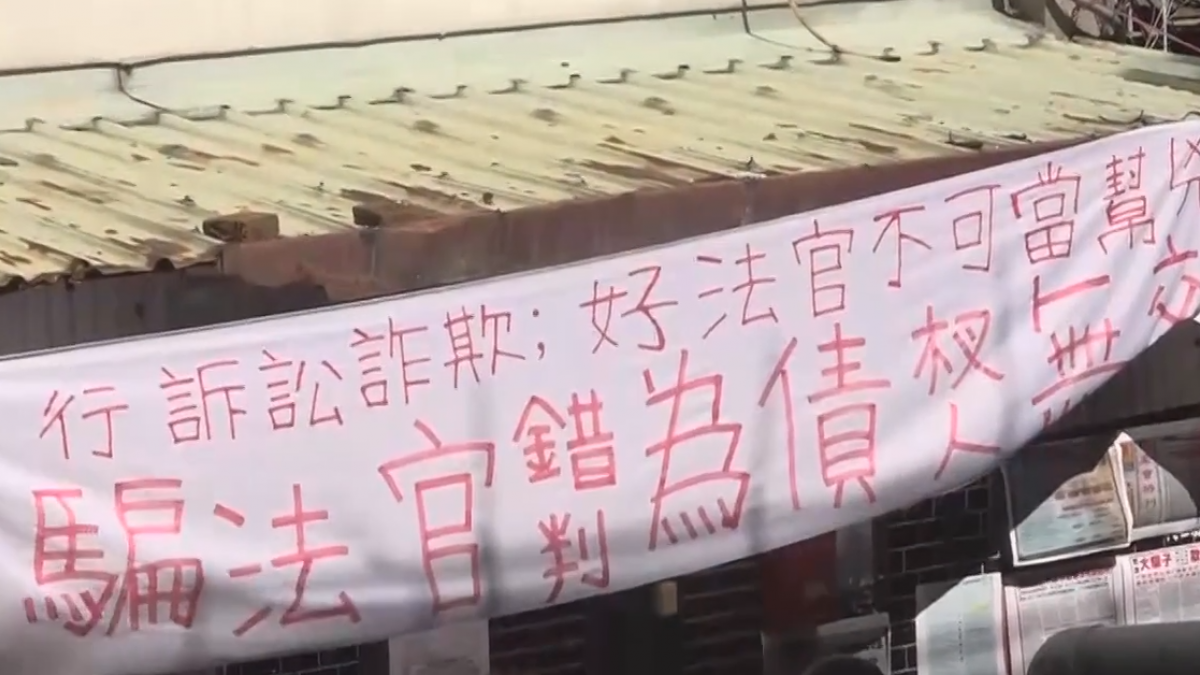 行訴訟詐欺;好法官不可當幫
騙法官錯判為債杈人